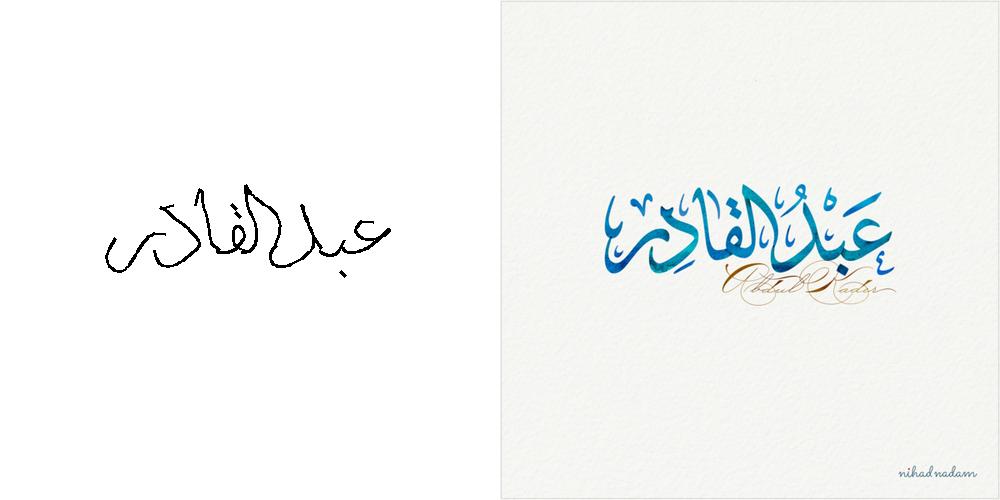 عبد القادر
عَبْدُ القادِر
Abdul Kader
nihadnadam